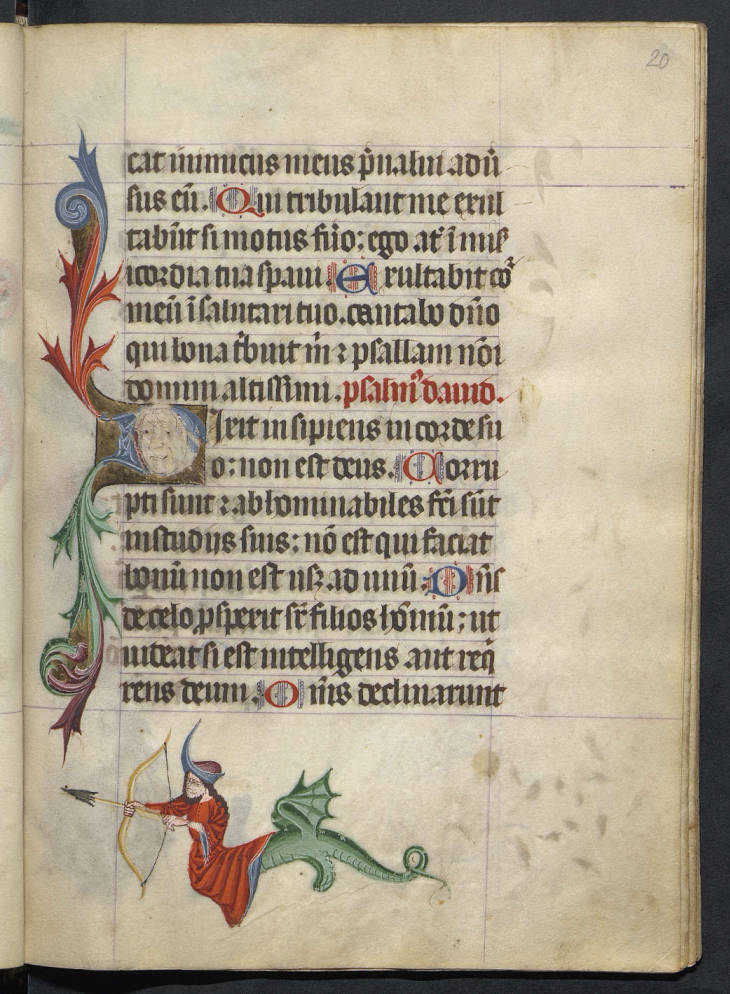 20
cat inimicus meus p̄ualui adū
sus eū. Qui tribulant me exul
tabūt si motus fůo; ego at̄ ī miẜ
icordia tua spaui. Exultabit co᷑
meū ī salutari tuo. cantabo dn̄o
qui bona t̄buit m̄ ⁊ psallam nōi
domini altissimi. psalmꝰ dauid.
Dixit insipiens in corde su
o: non est deus. Corru
pti sunt ⁊ abhominabiles fc̄i sūt
in studijs suis: nō est qui faciat
bonū non est usqꝫ ad unū. Dn̄s
de celo ꝓsperit sr̄ filios hōinū: ut
uideat si est intelligens aut req̄
rens deum. Om̄s declinarunt